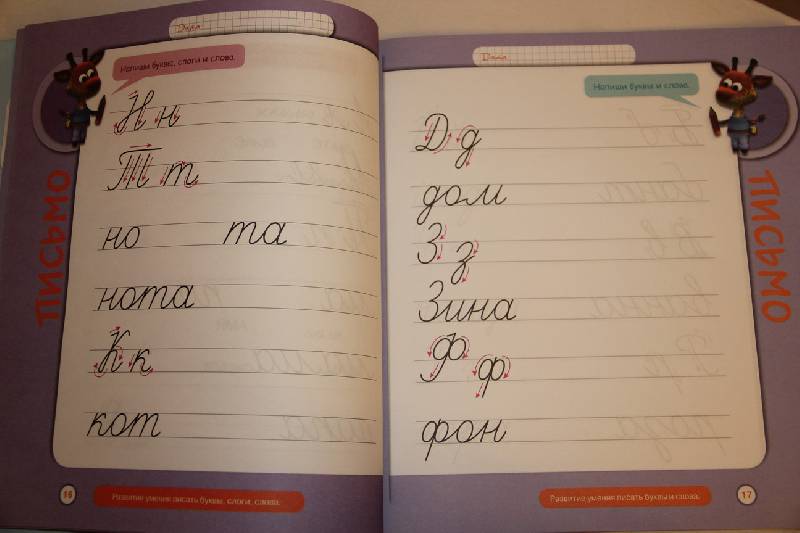 Дата
Напиши буквы, слоги и слова.
ПИСЬМО
Н н
Т т
но та
нота
К к
кот
16
Развитие умения писать буквы, слоги, слова.
Дата
Напиши буквы и слова.
ПИСЬМО
Д д
дом
З з
Зина
Ф ф
фон
Развитие умения писать буквы и слова.
17